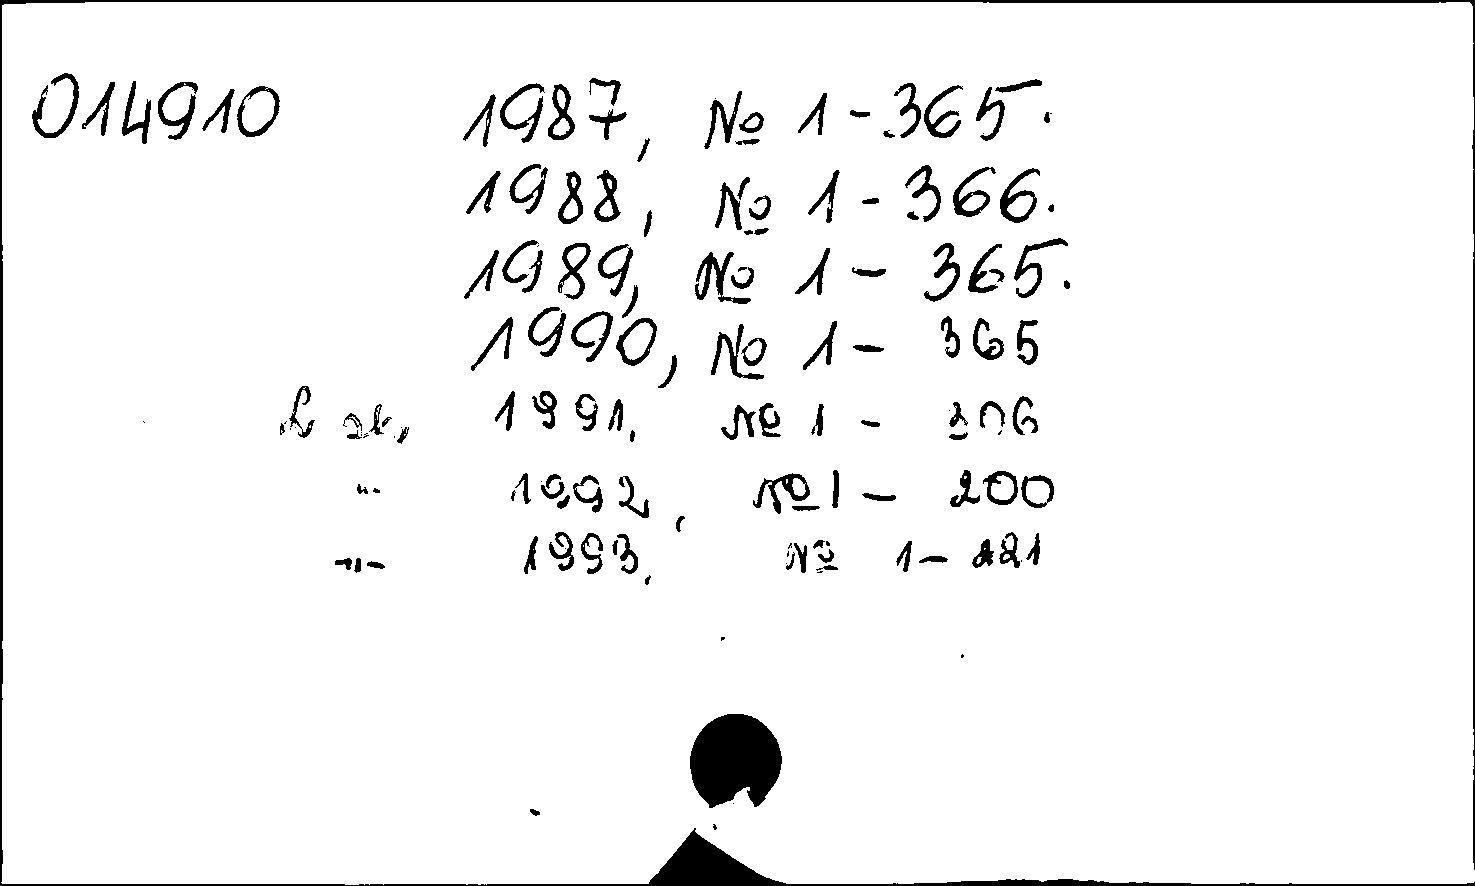 014910 1987, № 1-365.
1988, № 1-366.
1989, № 1-365.
1990, № 1-365
1991. № 1-306
" 1992, № 1-200
-"- 1993. № 1-221